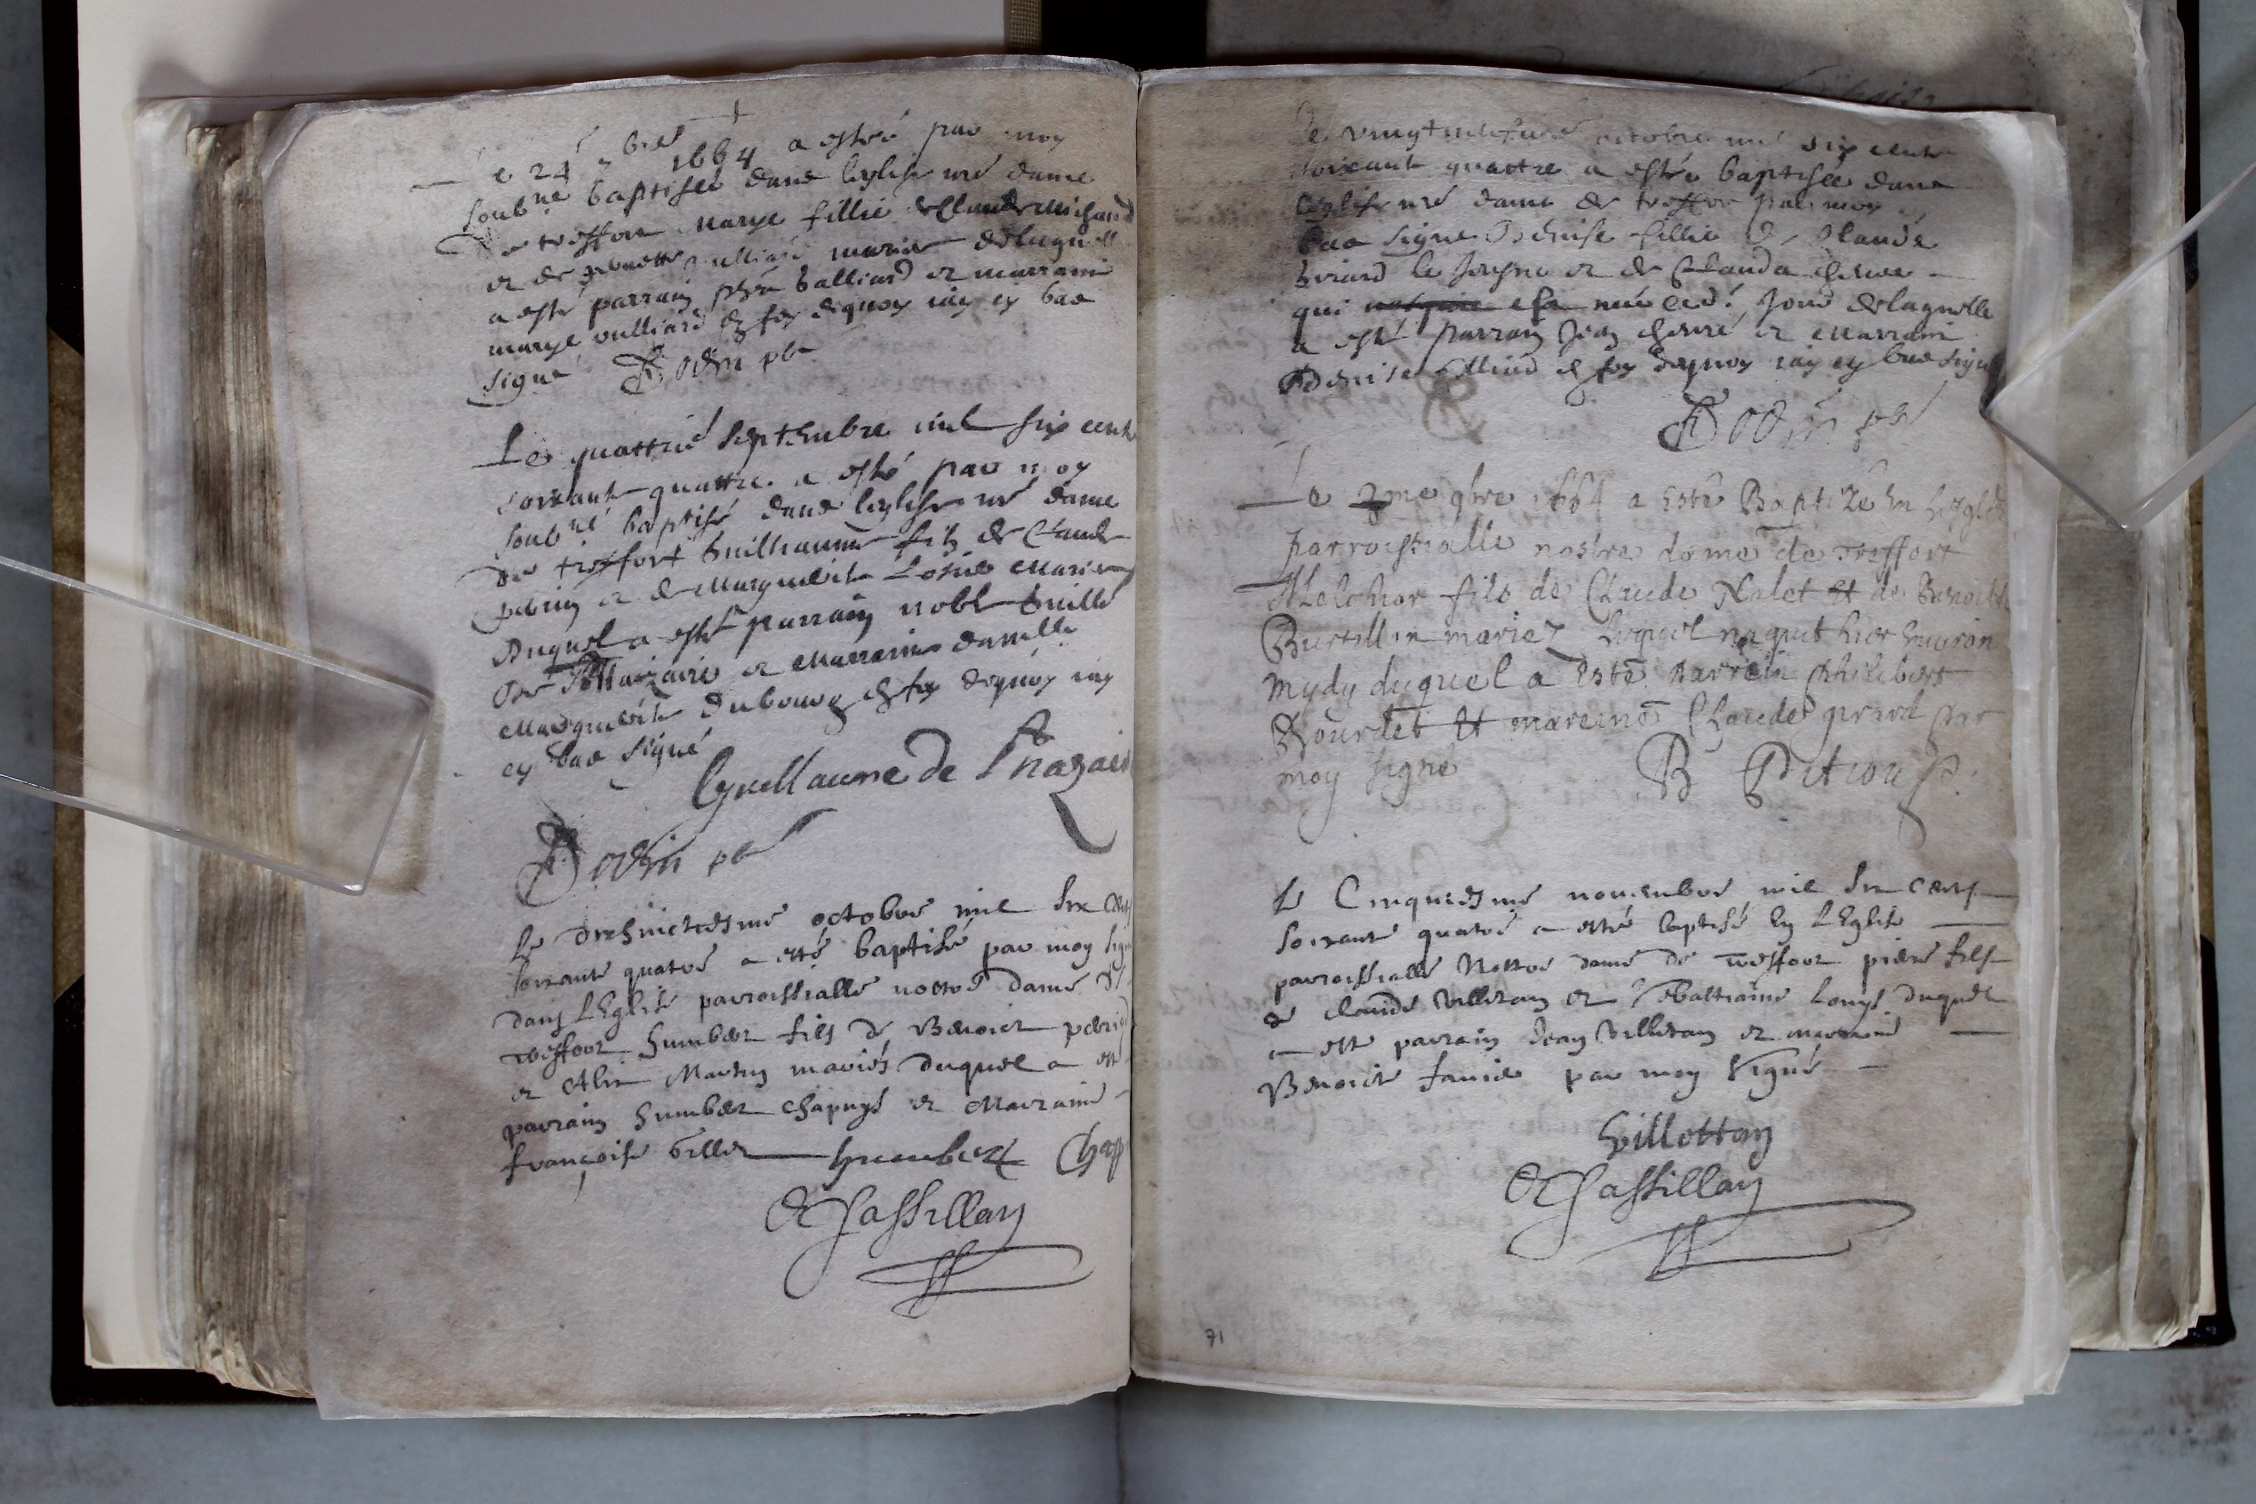 Le 24e 7bre 1664 a esté par moy
soubné baptisée dans leglise nre dame
de treffort Marye fillie de Claude Michaud
et de pernette vulliard mariés de laquelle
a esté parrain phe balliard et marraine
marye vulliard en foy dequoy iay cy bas
signé Bodin pbre
Le quattrie septembre mil six cent
soixante quattre a esté par moy
soubné baptisé dans leglise nre dame
de treffort Guilliaume filz de Claude
et de Marguerite Mariés
Duquel a esté parrain noble Guille
de Thazaire et Marraine damlle
Marguerite dubourg en foy dequoy iay
cy bas signé
Guillaume de
Bodin pbre
Le dixhuictiesme octobre mil six cent
soixante quatre a esté baptisé par moy signé
dans LEglise parroissialle nostre dame de
treffort humbert fils de Benoict perrin
et Martin mariés duquel a esté
parrain humbert chapuys et Marraine
francoise humbert Chap
De Jassillan
Le vingt octobre mil six cent
soixante quattre a esté baptisée dans
leglise nre dame de treffort par moy
bas signé Denise fillie de Claude
le Jeusne et de Clauda chevre
qui est née ledt Jour de laquelle
a esté parrain Jean chevre et Marraine
Denise en foy dequoy iay cy bas signé
Bodin pbre
Le 2me 9bre 1664 a Esté Baptizé en Leglise
parroissialle nostre dame de Treffort
Melchior fils de Claude Nalet Et de Benoite
Burtillin mariez lequel naquit hier environ
mydy duquel a Esté parrein Philibert
Bourdet Et mareine Claude girard par
moy signé B Pition P.
Le Cinquiesme novembre mil six cents
soixante quatre a esté baptisé en LEglise
parroissialle Nostre dame de treffort piere fils
de claude villetan et Lonys duquel
a este parrain Jean villetan et marraine
Benoite favie par moy signé
Villottan
De Jassillan
71